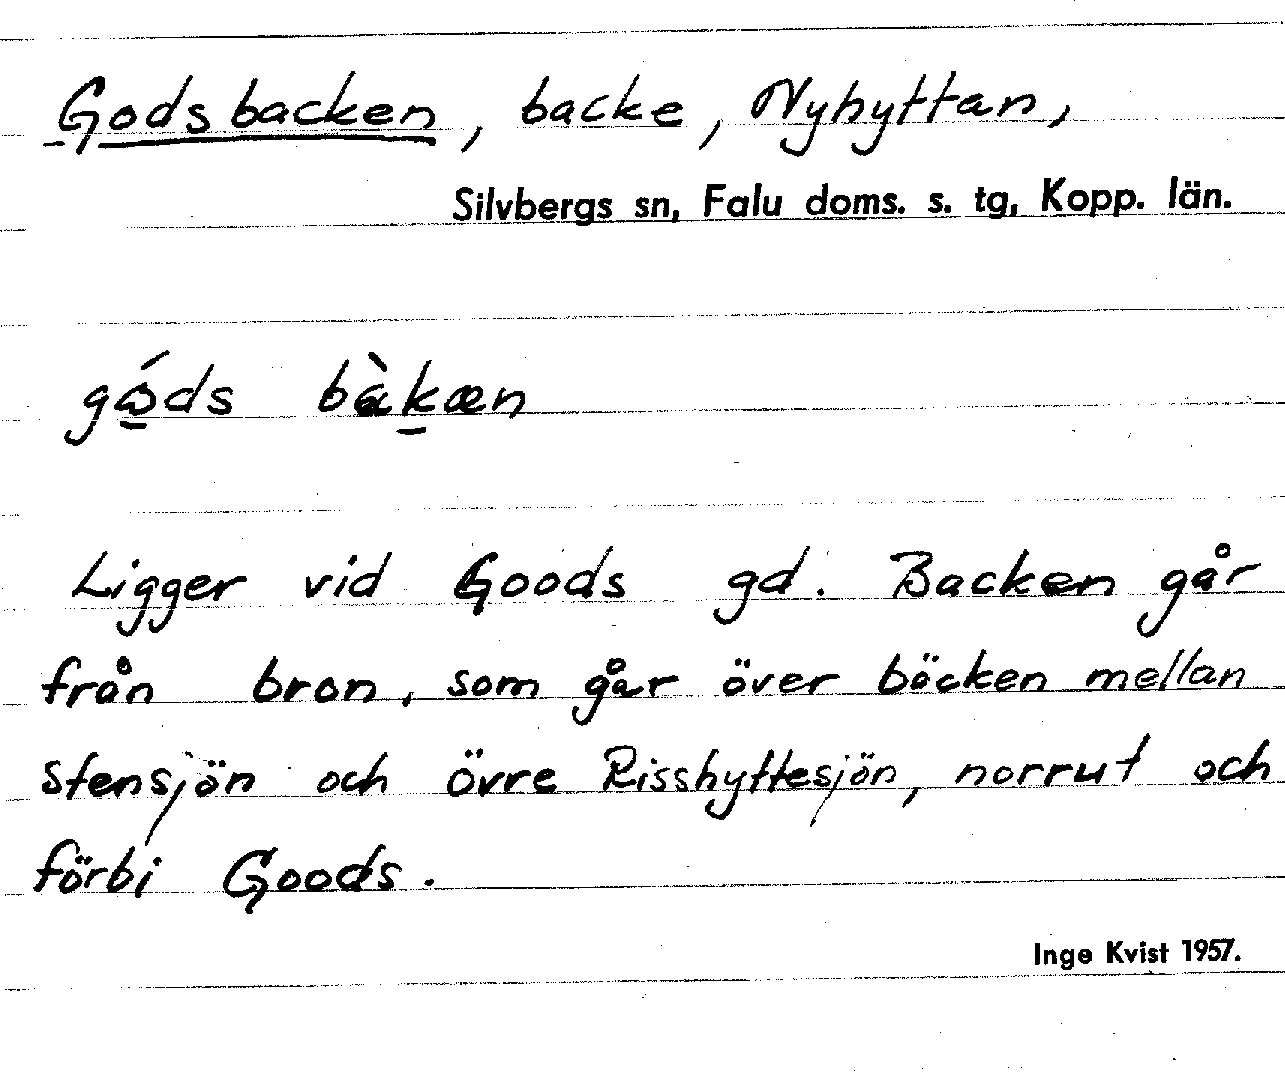 Godsbacken, backe, Nyhyttan,
Silvbergs sn, Falu doms. s. tg, Kopp. län.
gó̱ds bàḵæn
Ligger vid Goods gd. Backen går
från bron, som går över bäcken mellan
Stensjön och övre Risshyttesjön, norrut och
förbi Goods.
Inge Kvist 1957.